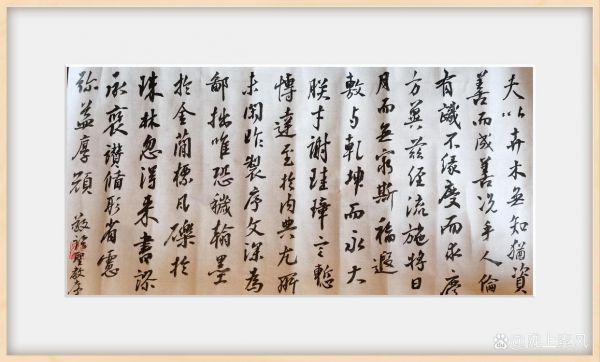 夫以卉木無知猶資
善而成善況乎人倫
有識不緣慶而求慶
方冀茲經流施將日
月而無窮斯福遐
敷与乾坤而永大
朕才謝珪璋言慙
博達至於內典尤所
未閑昨製序文深為
鄙拙唯恐穢翰墨
於金簡標瓦礫於
珠林忽得来書謬
承褒讚循躬省慮
弥益厚顏 敬臨聖教序